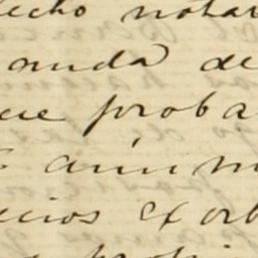 echo notar
anda de
que proba
anim
icios exorb